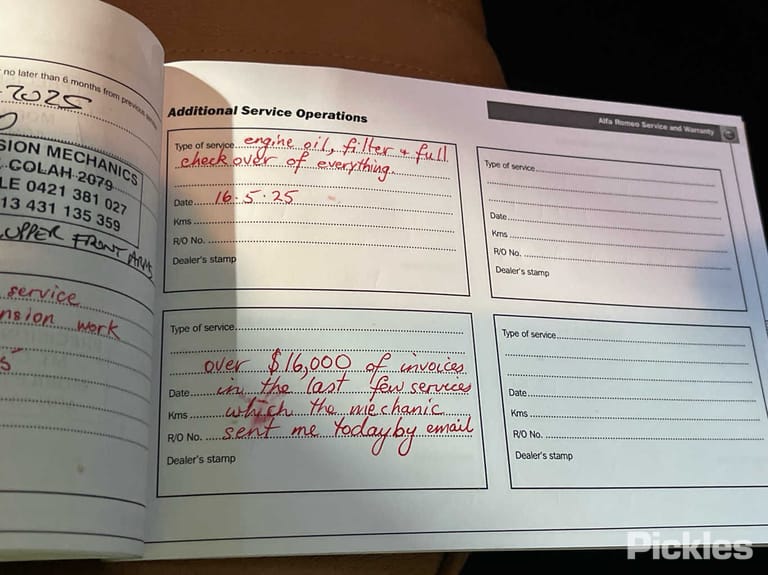 no later than 6 months from previous
2025
SION MECHANICS
COLAH 2079
LE 0421 381 027
13 431 135 359
UPPER FRONT ARMS
service
nsion work
Additional Service Operations
Alfa Romeo Service and Warranty
Type of service engine oil, filter + full
check over of everything.
Date 16.5.25
Kms
R/O No.
Dealer's stamp
Type of service
Date
Kms
R/O No.
Dealer's stamp
Type of service
over $16,000 of invoices
Date in the last few services
Kms which the mechanic
R/O No. sent me today by email
Dealer's stamp
Type of service
Date
Kms
R/O No.
Dealer's stamp
Pickles